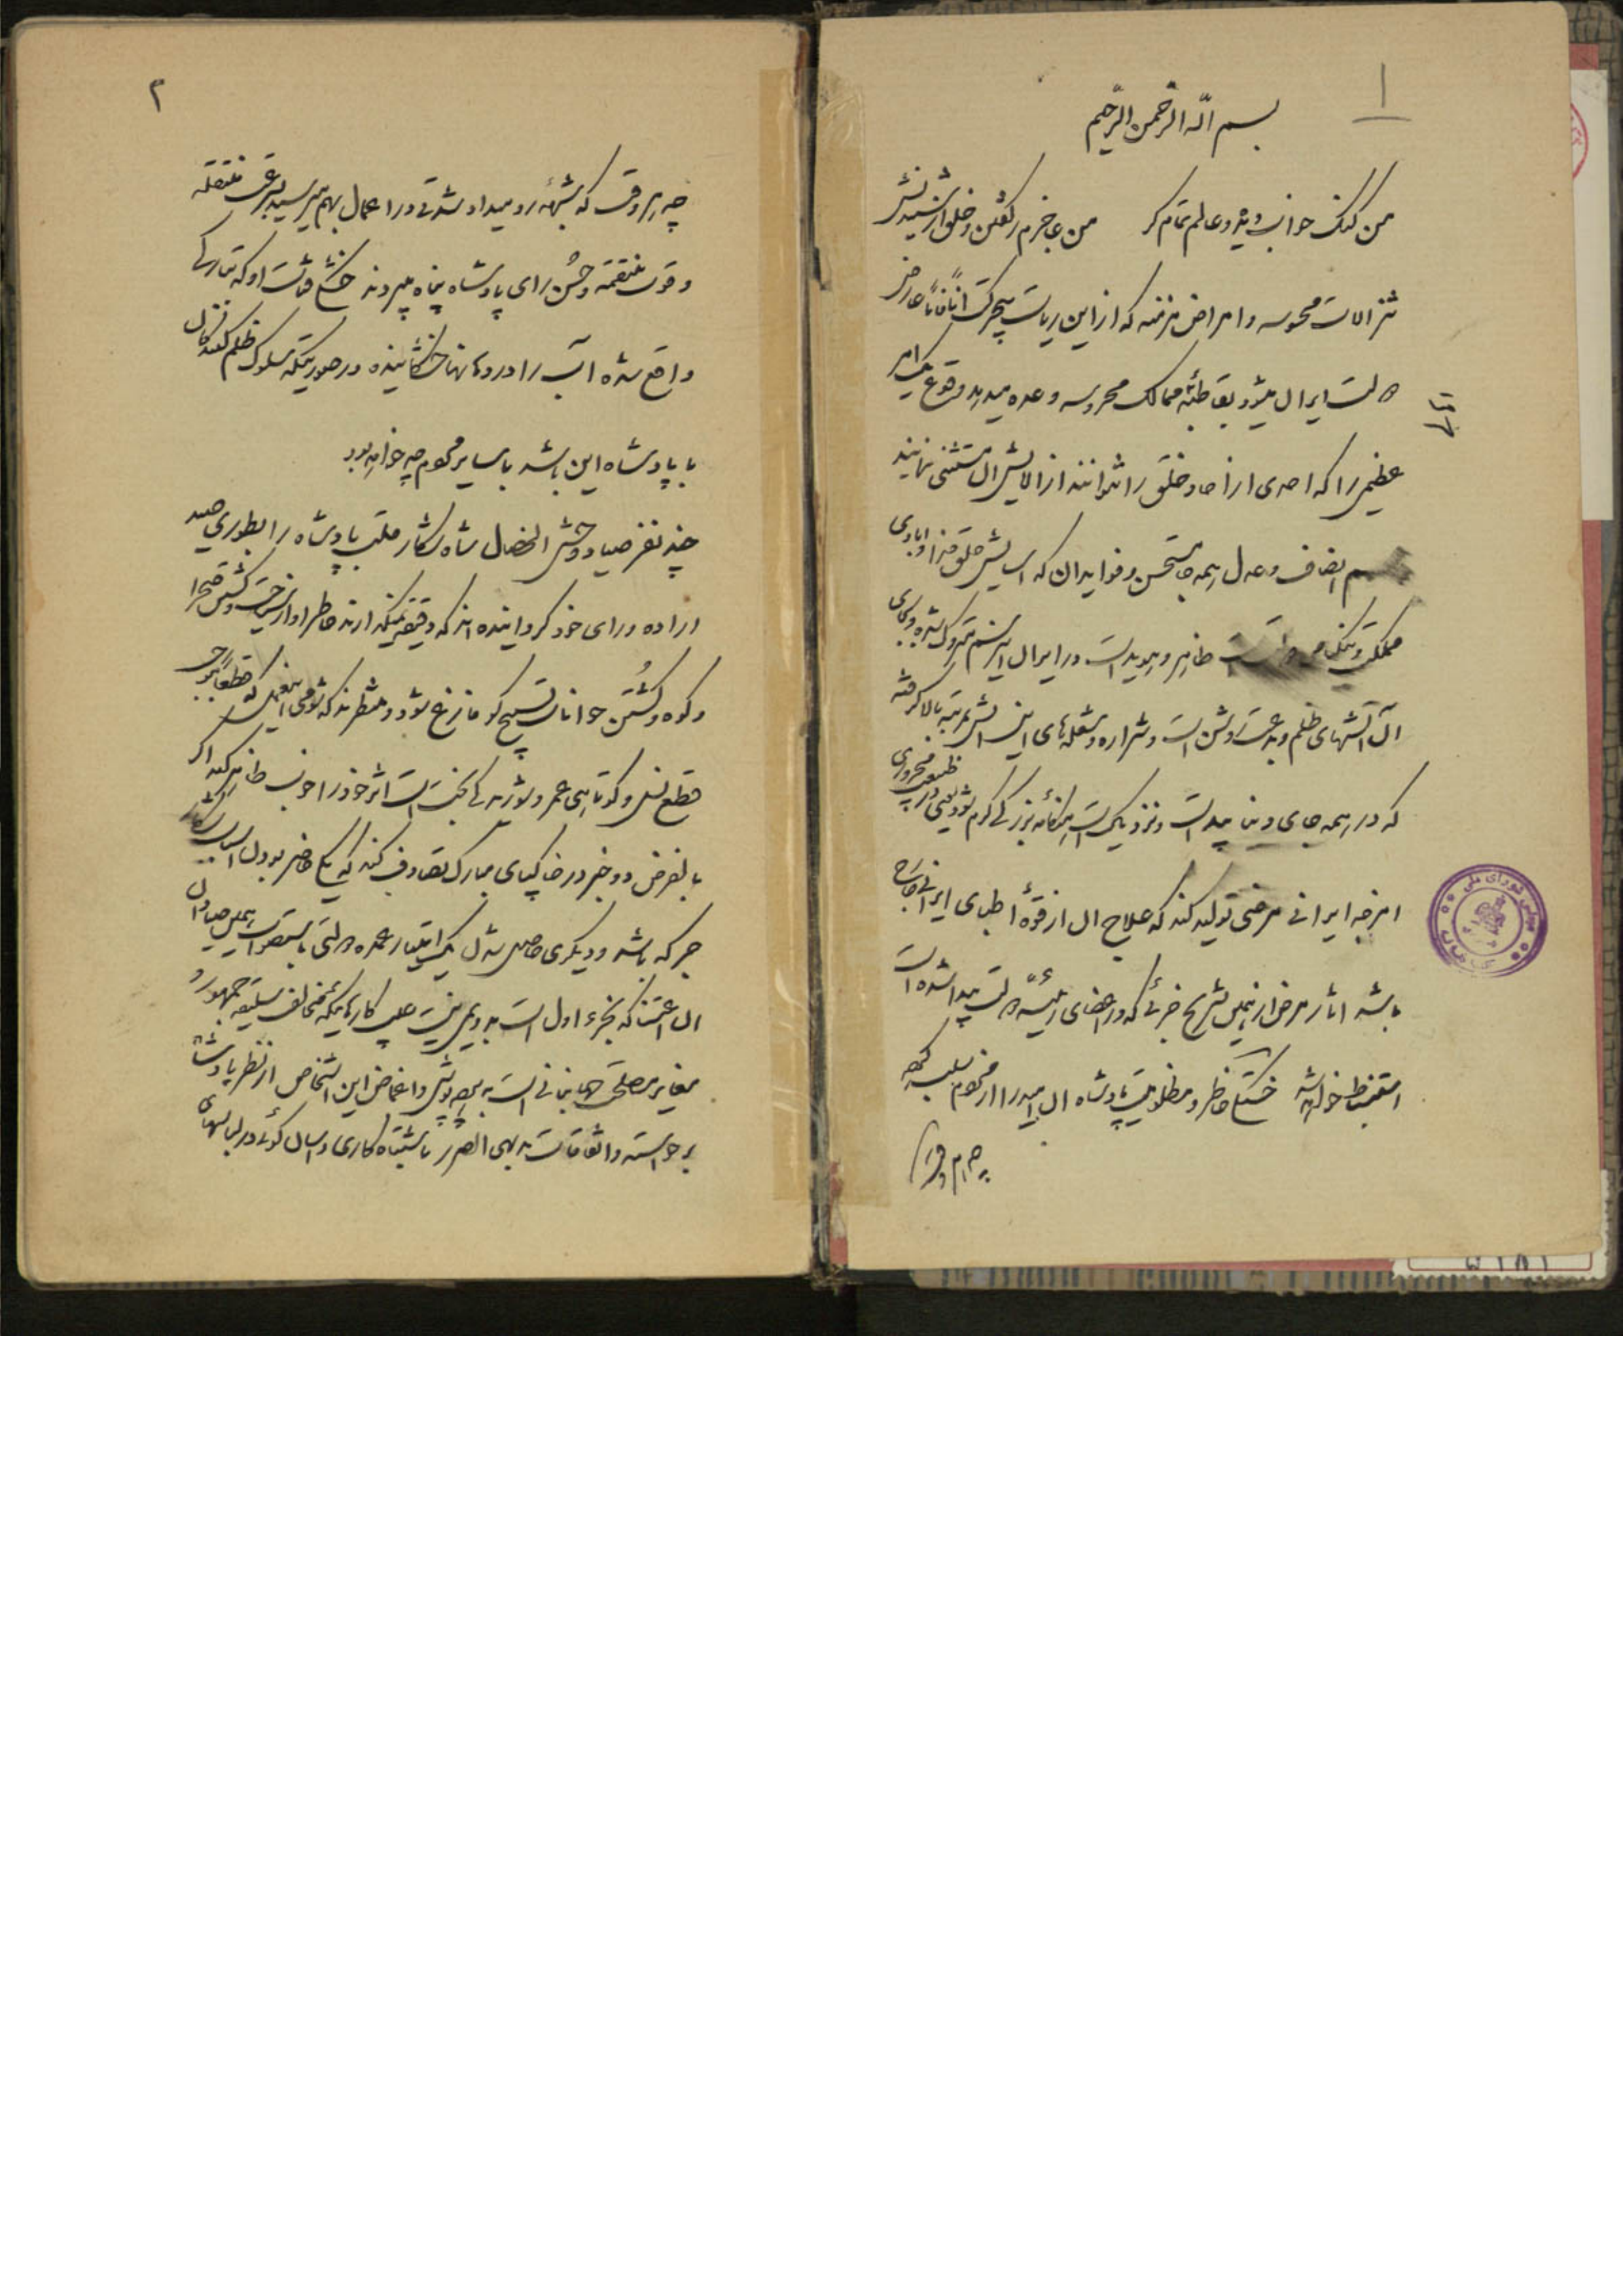 ۱
بسم الله الرحمن الرحیم
من گنگ خواب دیده و عالم تمام کر من عاجزم ز گفتن و خلق از شنیدنش
تنزلات محسوسه و امراض مزمنه که از این ریاست آناً فآناً عارض
دولت ایران میشود بقاطبهٔ ممالک محروسه وعده میدهد وقوع یک امر
عظیمی را که احدی از آحاد خلق را نتوانند از الایش آن مستثنی نمایند
رسم انصاف و عدل همه جا مستحسن و فواید آن که اسایش خلق خدا و ابادی
مملکت و ظاهر و هویداست در ایران این رسم متروک شده و بجای
آن آتشهای ظلم و بدعت روشن است و شراره و شعله های این آتش بمرتبه بالا گرفته
که در همه جای دنیا پیداست و نزدیک است هنگامه بزرگی گرم شود یعنی در
امزجه ایرانی مرضی تولید کند که علاج آن از قوهٔ اطبای ایرانی خارج
باشد اثار مرض از همین تشریح جزئی که در اعضای رئیسهٔ دولت پیدا شده است
استنباط خواهد شد خستگی خاطر و مظلومیت پادشاه آن امید را از عموم سلب کرده
چه هر وقت
۲
چه هر وقت که شبهه رو میداد شدتی در اعمال بهم میرسید بترقی منتقله
و قوت منتقمه و حسن رای پادشاه پناه میبردند خستگی و شماتت او که بتازگی
واقع شده آب را در دهانها خشکانیده در صورتیکه سلوک ظلم کنندگان
با پادشاه این باشد با سایر عموم چه خواهد بود
چند نفر صیاد وحشی الخصال شاه شکار قلب پادشاه را بطوری صید
اراده و رای خود گردانیده اند که دقیقه نمیگذارند خاطر او از سیاحت و گشتن صحرا
و کوه و کشتن حیوانات تسبیح گو فارغ شود و منتظرند که شومی این عمل که قطعاً موجب
قطع نسل و کوتاهی عمر و بخت است اثر خود را خوب ظاهر کند اگر
بالفرض دو خبر در خاکپای مبارک تصادف کند که یکی حاضر بودن اسباب شکار
جرگه باشد و دیگری حاصل شدن یک امتیاز عمده دولتی باستصواب همین صیادان
آن اعتنا که بخبر اول است بدویمی نیست جلب کارهائیکه مخالف سلیقه جمهور و
مغایر مصلحت جهانبانی است به پرده پوشی و اغماض این اشخاص از نظر پادشاه
برخواسته و اتفاقات بدیهی الضرر باشتباه کاری و اسان گوئی در لباسهای